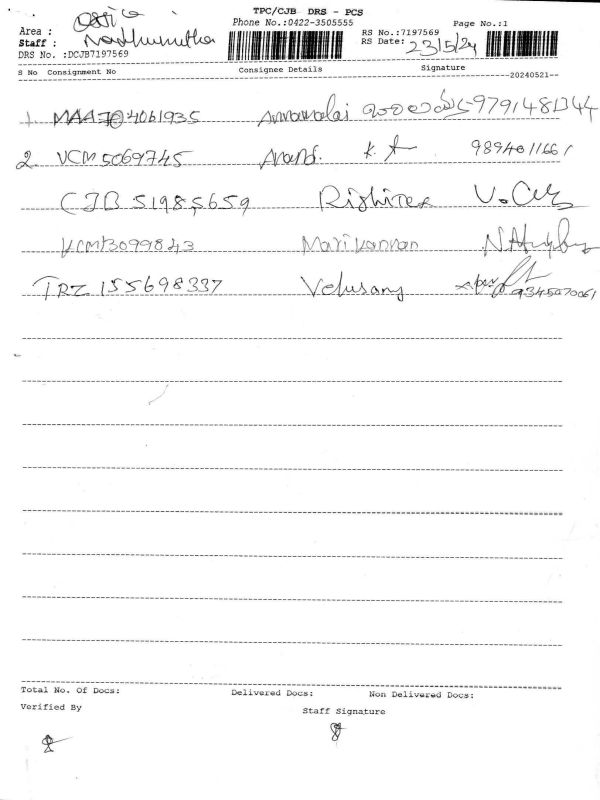 TPC/CJB DRS - PCS
Phone No.:0422-3505555
Page No.:1
Area : Office
RS No.:7197569
Staff :
RS Date: 23/5/24
DRS No. :DCJB7197569
S No Consignment No Consignee Details Signature
--20240521--
1. Annamalai 9791481344
2. VCM5069745 Anand. 9894011661
CJB 51985659
KCMB3099843 Marikannan
TRZ 155698337 Velusamy 9345070061
Total No. Of Docs: Delivered Docs: Non Delivered Docs:
Verified By
Staff Signature